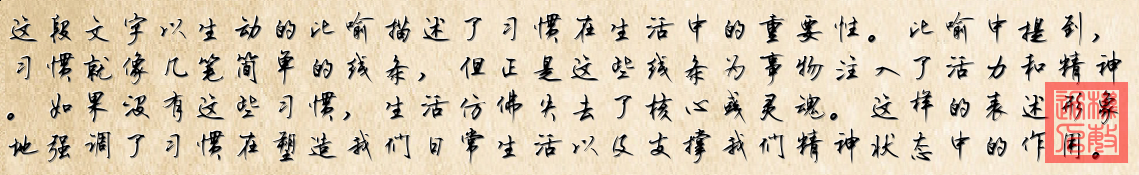 这段文字以生动的比喻描述了习惯在生活中的重要性。比喻中提到，
习惯就像几笔简单的线条，但正是这些线条为事物注入了活力和精神
。如果没有这些习惯，生活仿佛失去了核心或灵魂。这样的表述形象
地强调了习惯在塑造我们日常生活以及支撑我们精神状态中的作用。